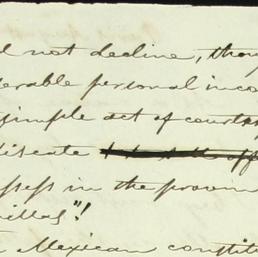 not decline, thou
erable personal inco
simple act of courtesy
ssess in the provin
illas"!
Mexican constit